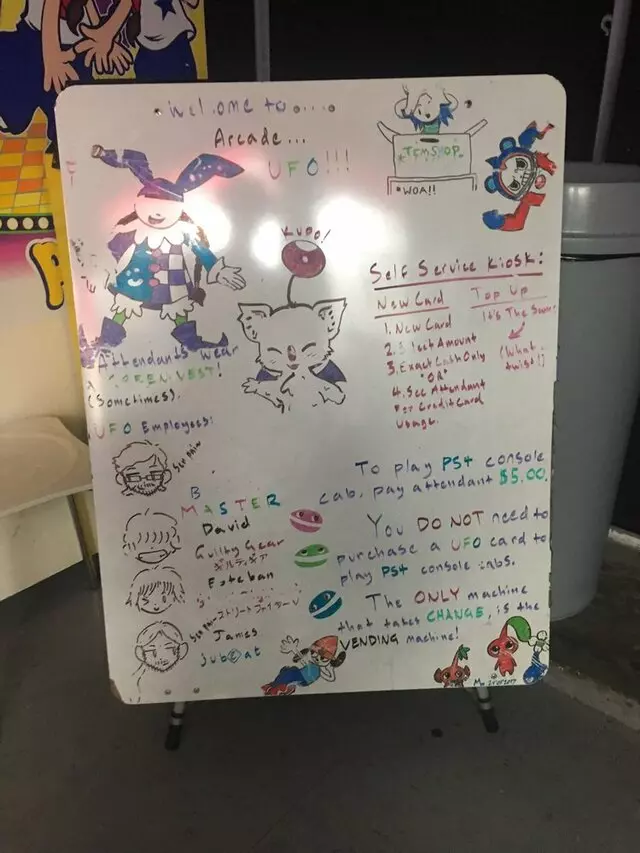 Welcome to....
Arcade...
UFO!!!
TEMSHOP
*WOA!!
KUPO!
Self Service Kiosk:
New Card
1. New Card
2. Select Amount
3. Exact Cash Only
"OR"
4. See Attendant
For Credit Card
Usage.
Top Up
It's The Same
(What a
twist!)
Attendants wear
a GREEN VEST!
(Sometimes).
UFO Employees:
B
MASTER
David
Guilty Gear
ギルティギア
Esteban
ストリートファイターV
James
jubeat
To play PS4 console
cab, pay attendant $5.00.
You DO NOT need to
purchase a UFO card to
play PS4 console cabs.
The ONLY machine
that takes CHANGE, is the
VENDING machine!